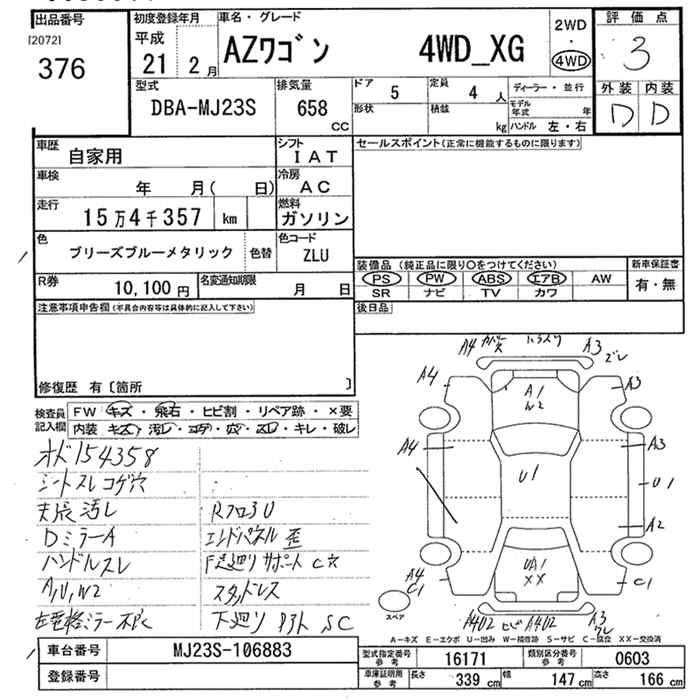 出品番号
[20720]
376
初度登録年月
平成
21 2月
車名・グレード
AZワゴン 4WD_XG
2WD
・
4WD
評価点
3
外装 内装
D D
型式
DBA-MJ23S
排気量
658
CC
ドア 5
定員 4 人
ディーラー・並行
形状
積載 kg
モデル年式 年
ハンドル 左・右
車歴 自家用
シフト IAT
セールスポイント(正常に機能するものに限ります)
車検 年 月( 日)
冷房 AC
走行 15万4千357 km
燃料 ガソリン
色 ブリーズブルーメタリック 色替
色コード ZLU
装備品 (純正品に限り○をつけてください)
新車保証書
PS PW ABS エアB AW
有・無
SR ナビ TV カワ
R券 10,100円
名変通知期限 月 日
後日品
注意事項申告欄(不具合内容等は具体的に記入して下さい)
修復歴 有〔箇所 〕
検査員記入欄
FW キズ・飛石・ヒビ割・リペア跡・×要
内装 キズ・汚レ・コゲ・穴・スレ・キレ・破レ
オド154358
シートスレコゲ穴
天張汚レ Rフロ3U
Dミラー A エンドパネル 歪
ハンドルスレ F足廻りサポート C穴
A1,U1,W2 スタッドレス
左電格ミラー不良 下廻り SC
A4 A3
A4 A1 W2 A3
A4 U1 A3
U1
A2
UA1
XX
A4 C1 C1
スペア
A4U2 ヒビ A4U2 A3
A-キズ E-エクボ U-凹み W-補修跡 S-サビ C-腐食 XX-交換済
車台番号 MJ23S-106883
登録番号
型式指定番号 参考 16171
類別区分番号 参考 0603
車庫証明用 参考
長さ 339 cm 幅 147 cm 高さ 166 cm